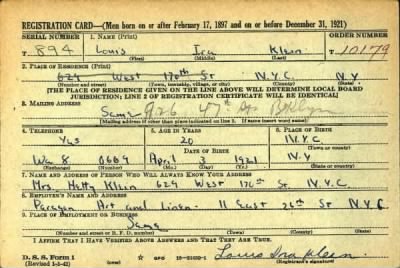 REGISTRATION CARD—(Men born on or after February 17, 1897 and on or before December 31, 1921)
SERIAL NUMBER 1. NAME (Print) ORDER NUMBER
T 894 Louis Ira Klein T 10179
(First) (Middle) (Last)
2. PLACE OF RESIDENCE (Print)
629 West 170th St N.Y.C. N.Y
(Number and street) (Town, township, village, or city) (County) (State)
[THE PLACE OF RESIDENCE GIVEN ON THE LINE ABOVE WILL DETERMINE LOCAL BOARD
JURISDICTION; LINE 2 OF REGISTRATION CERTIFICATE WILL BE IDENTICAL]
3. MAILING ADDRESS
Same 926 47th St Bklyn
[Mailing address if other than place indicated on line 2. If same insert word same]
4. TELEPHONE 5. AGE IN YEARS 6. PLACE OF BIRTH
Yes 20 N.Y.C.
DATE OF BIRTH (Town or county)
Wa 8 0669 April 3 1921 N.Y
(Exchange) (Number) (Mo.) (Day) (Yr.) (State or country)
7. NAME AND ADDRESS OF PERSON WHO WILL ALWAYS KNOW YOUR ADDRESS
Mrs. Hetty Klein 629 West 170th St. N.Y.C.
8. EMPLOYER'S NAME AND ADDRESS
Paragon Art and Linen. 11 East 26th St N.Y.C
9. PLACE OF EMPLOYMENT OR BUSINESS
Same
(Number and street or R. F. D. number) (Town) (County) (State)
I AFFIRM THAT I HAVE VERIFIED ABOVE ANSWERS AND THAT THEY ARE TRUE.
D. S. S. Form 1 GPO 16—21630-1 Louis Ira Klein
(Revised 1-1-42) (Registrant's signature)